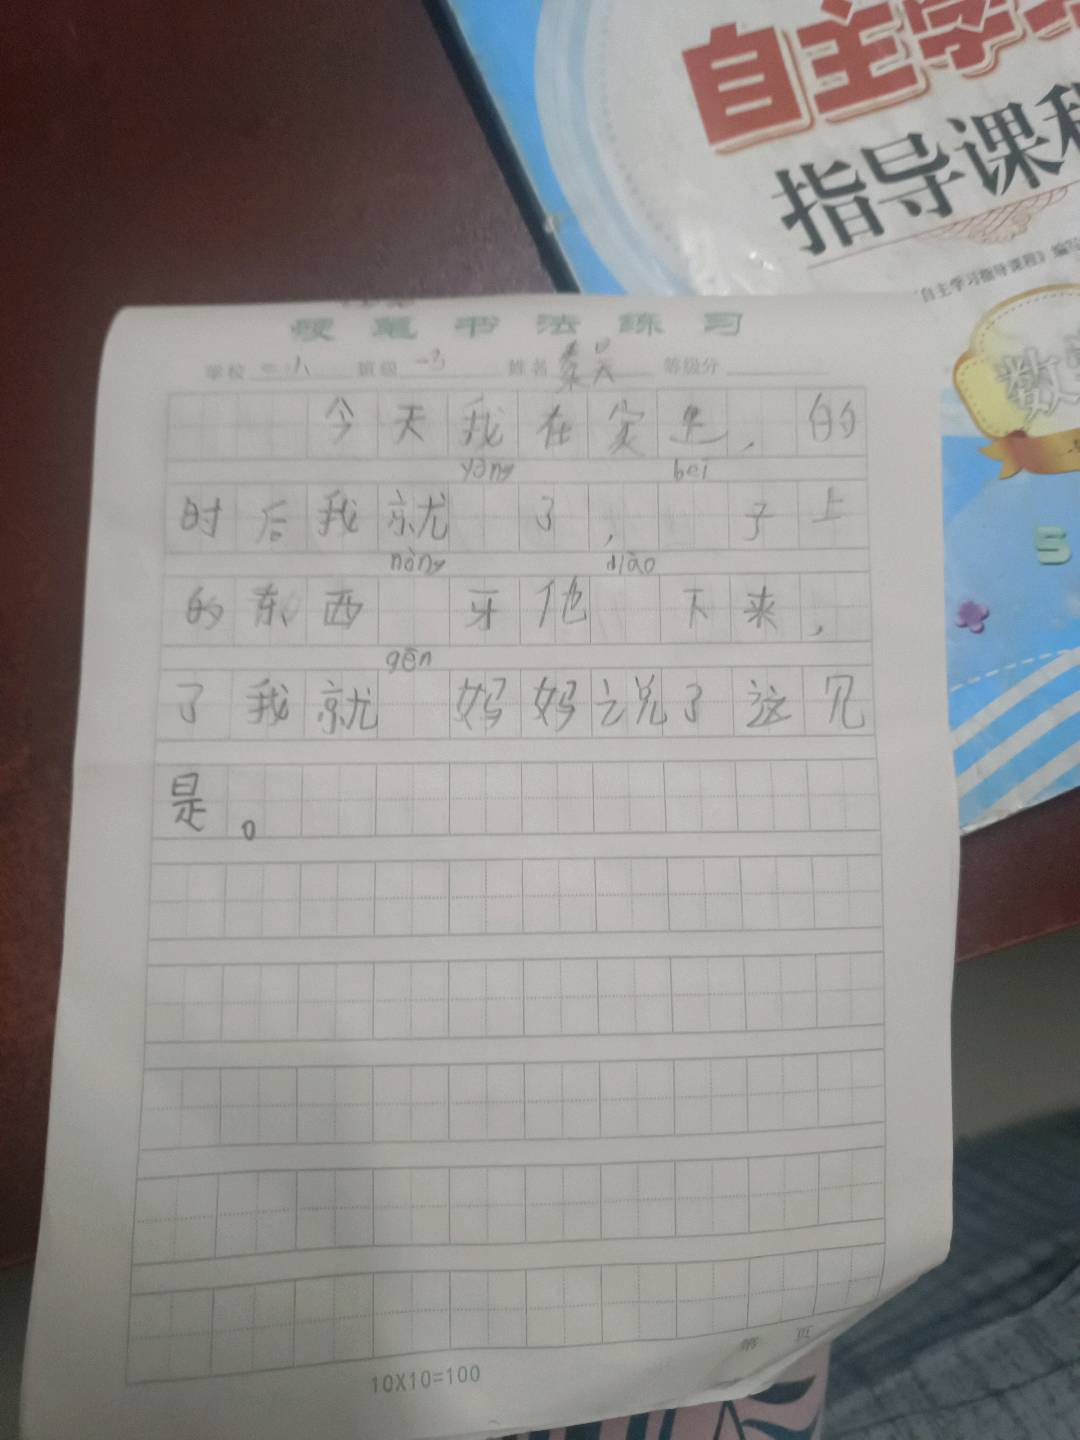 自主学习
指导课程
《自主学习指导课程》编写
数
5
硬笔书法练习
学校 二小 班级 一3 姓名 秦昊 等级分
今天我在家里,的
yàng bēi
时后我就 了, 子上
nòng diào
的东西 牙他 下来,
gēn
了我就 妈妈说了这见
是。
10X10=100
第 页